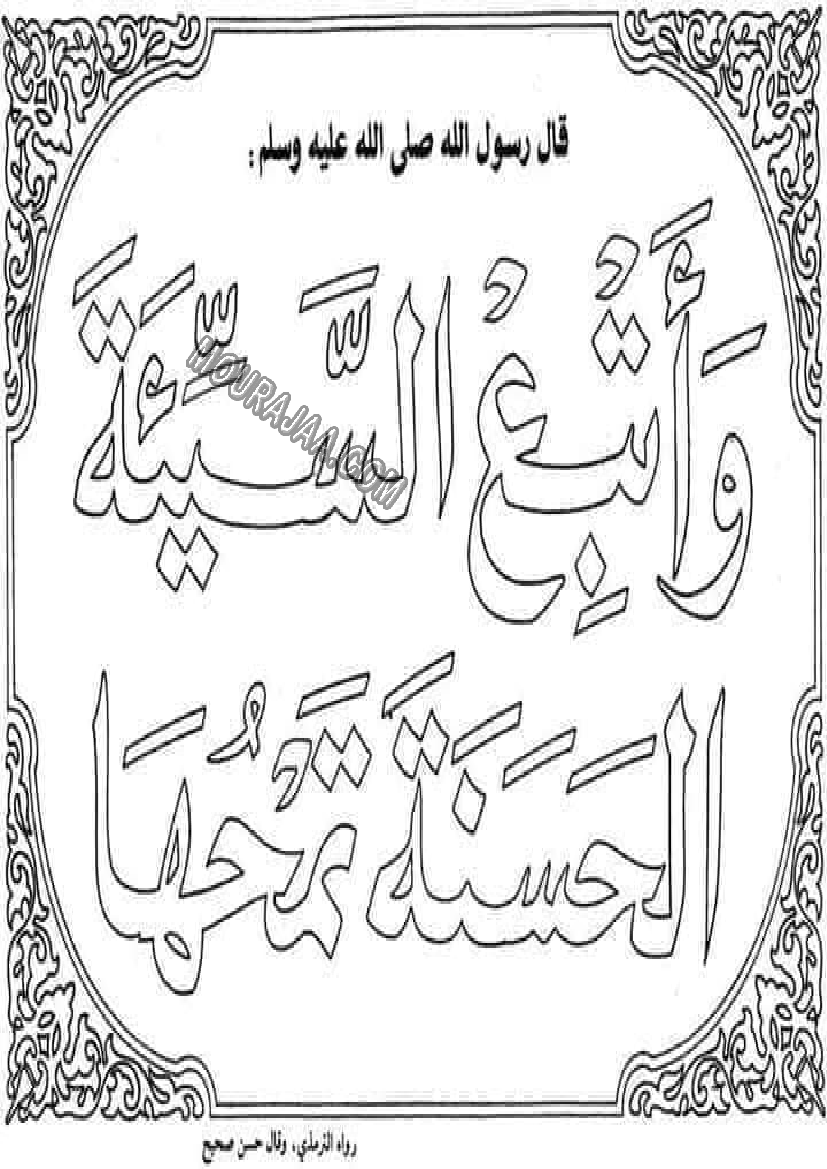 قال رسول الله صلى الله عليه وسلم :
وَأَتْبِعْ السَّيِّئَةَ
الحَسَنَةَ تَمْحُهَا
MOURAJAA.COM
رواه الترمذي، وقال حسن صحيح